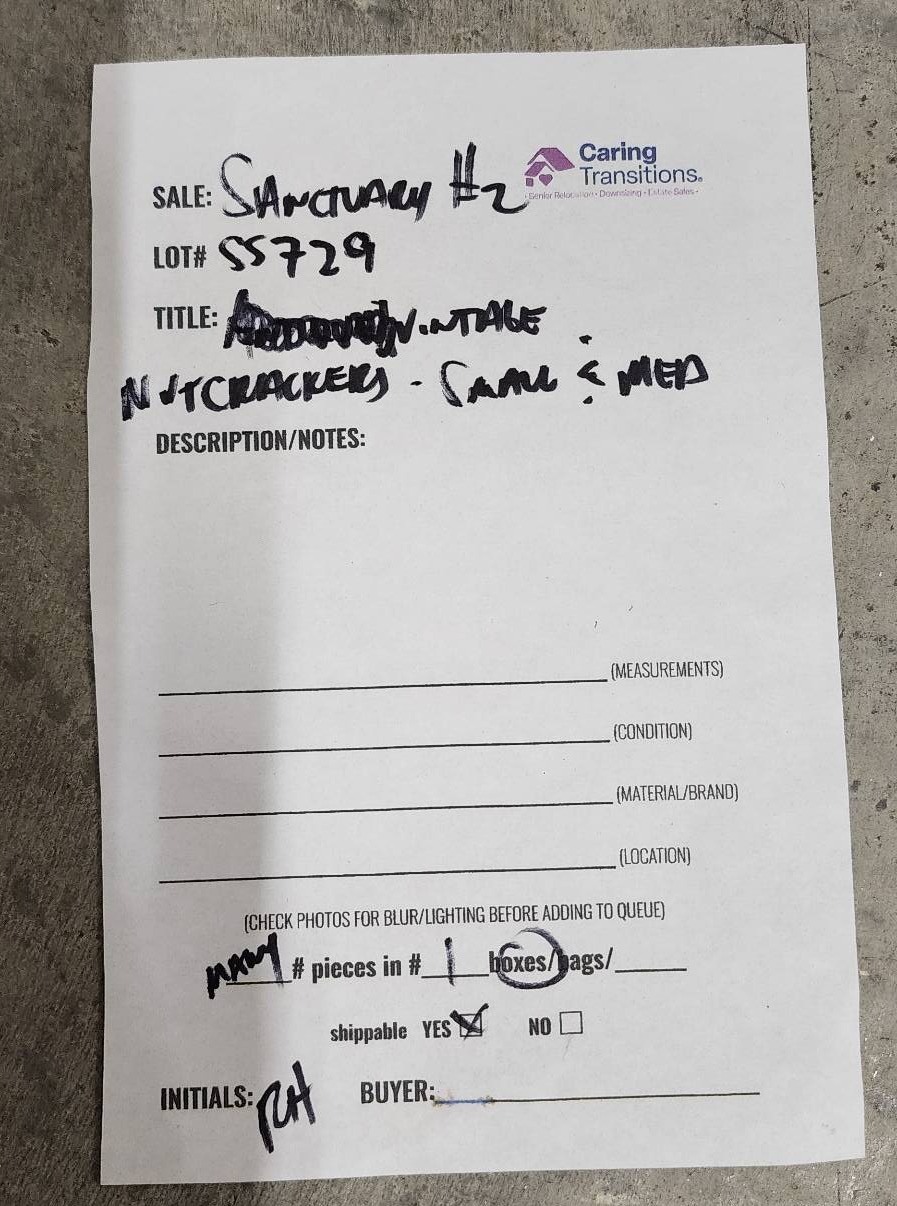 Caring
Transitions.
• Senior Relocation • Downsizing • Estate Sales •
SALE: SANCTUARY #2
LOT# SS729
TITLE: VINTAGE
NUTCRACKERS - SMALL & MED
DESCRIPTION/NOTES:
(MEASUREMENTS)
(CONDITION)
(MATERIAL/BRAND)
(LOCATION)
(CHECK PHOTOS FOR BLUR/LIGHTING BEFORE ADDING TO QUEUE)
MANY # pieces in # 1 boxes/bags/
shippable YES NO
INITIALS: RH BUYER: